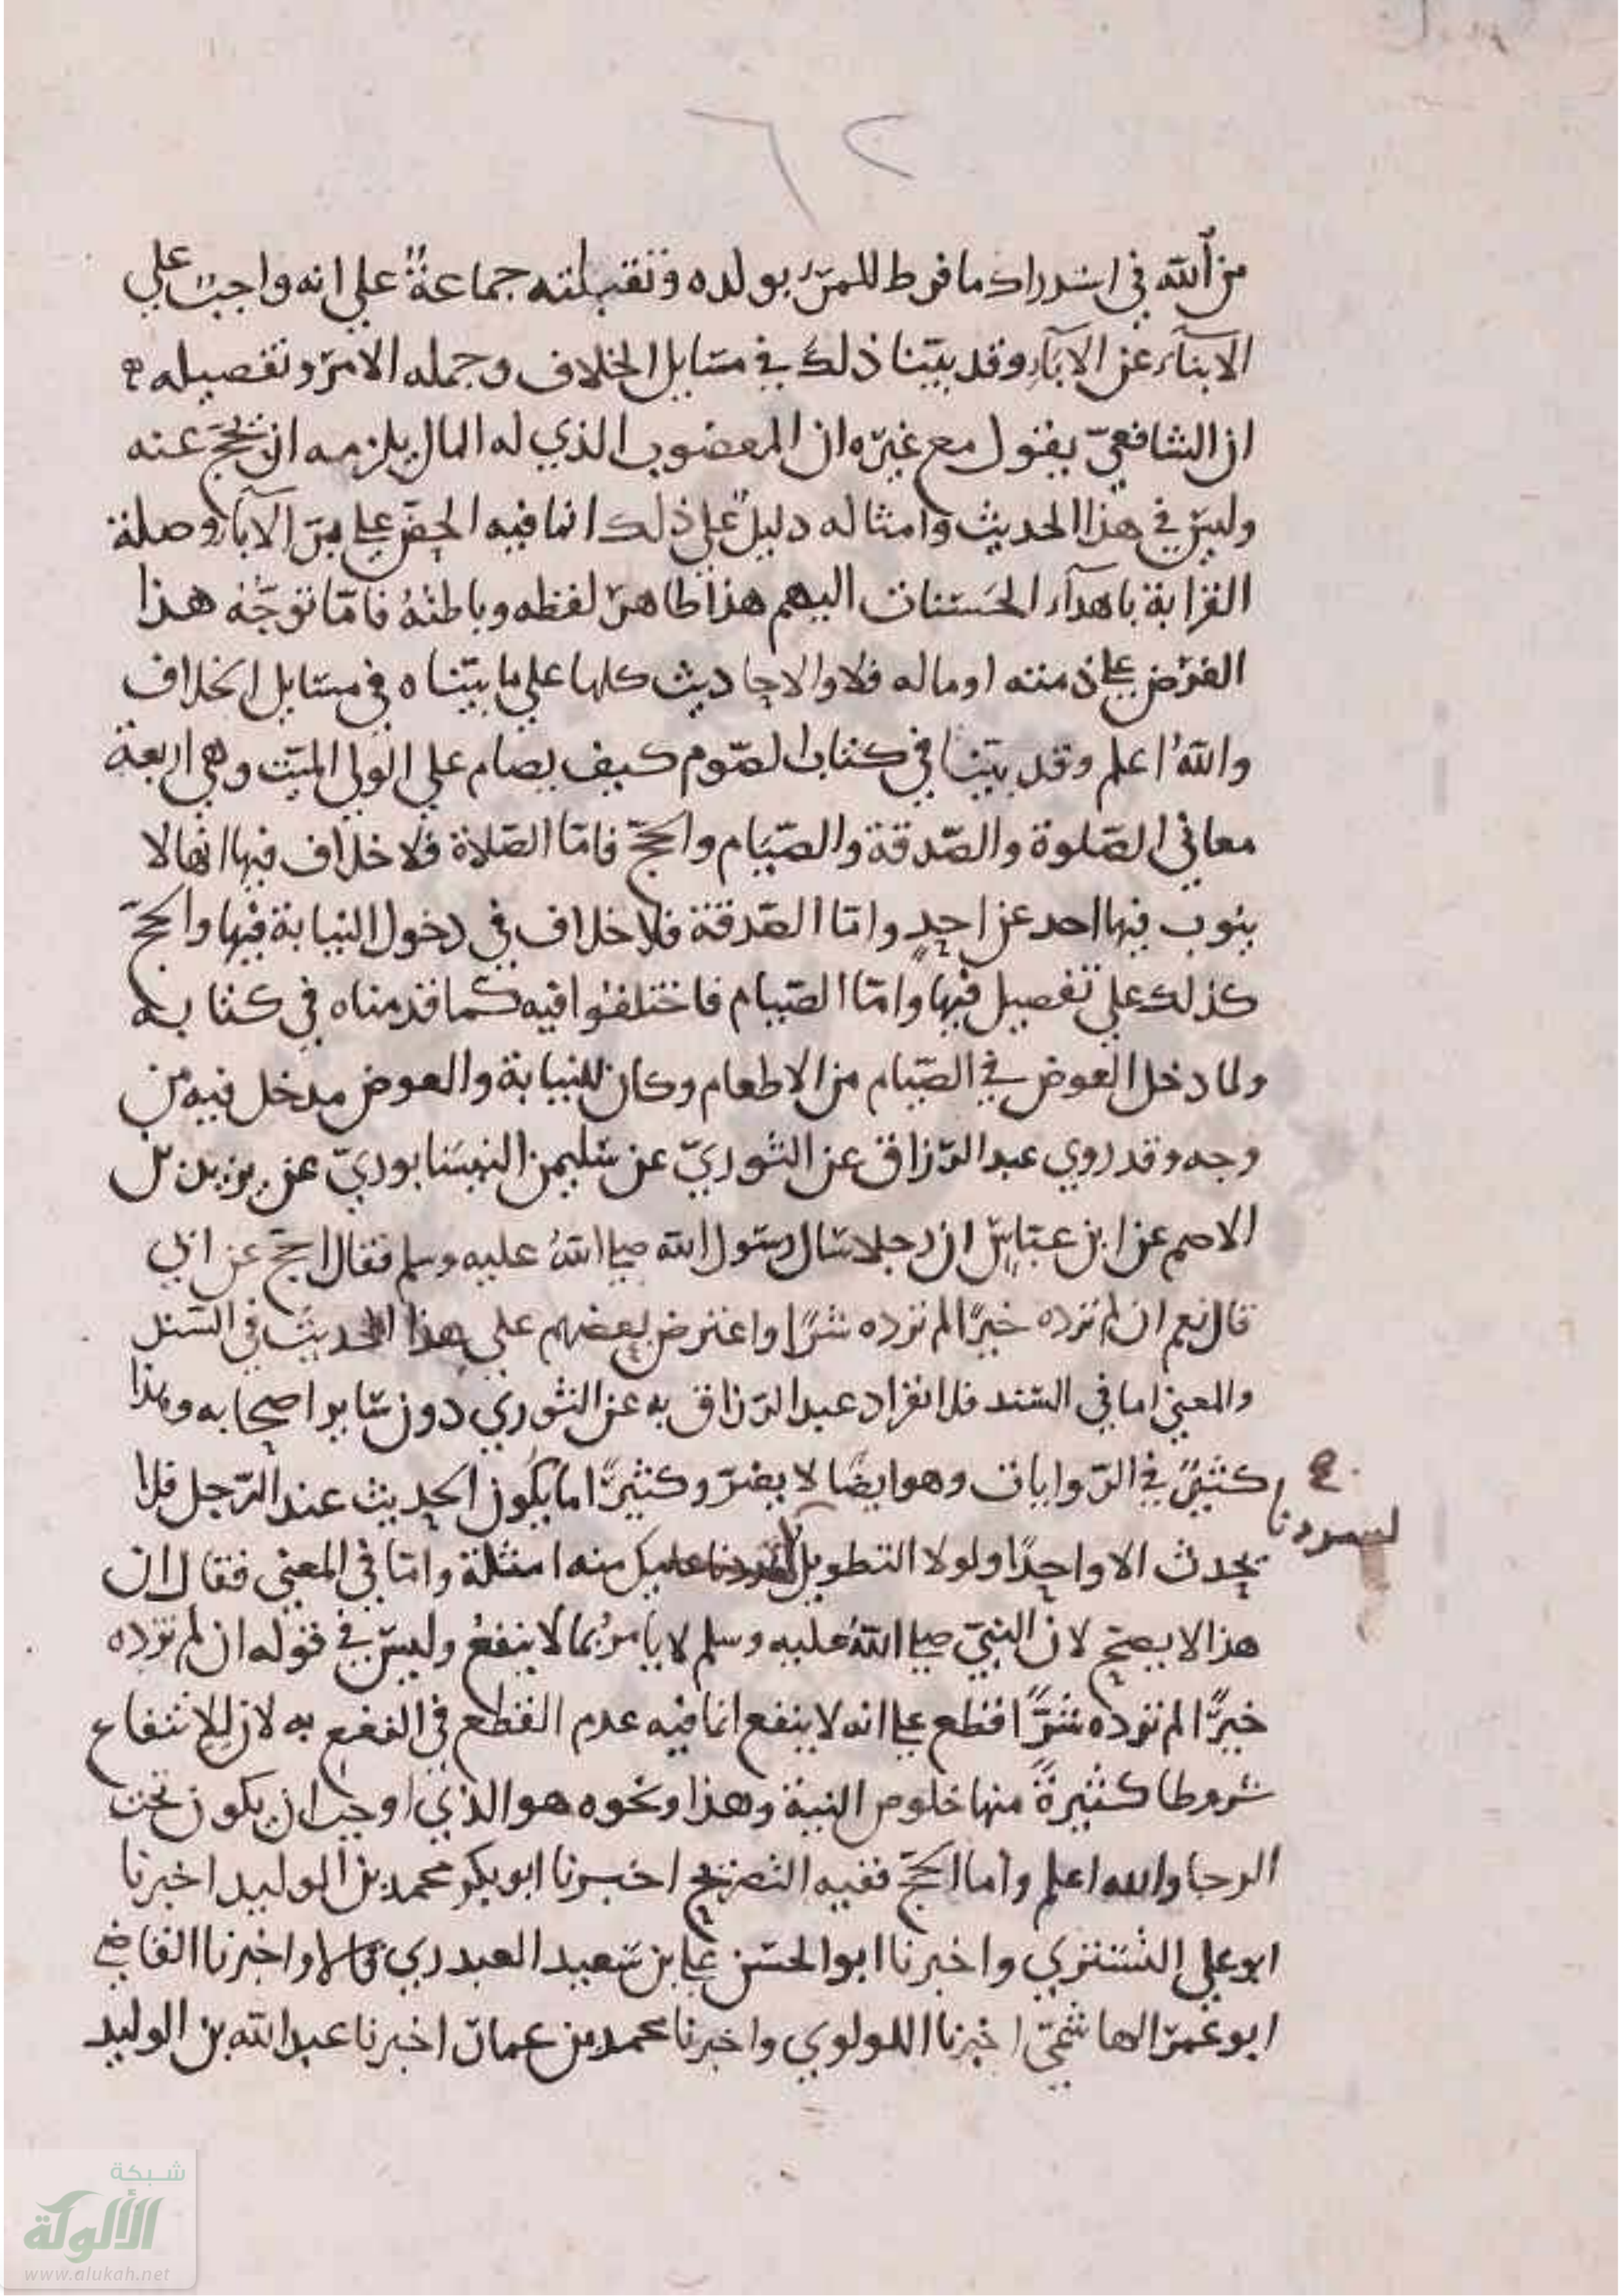 ٦٢
من الله في استدراك ما فرط للمرء بولده وتقبلته جماعة علي انه واجب علي
الابنآء عن الآبآء وقد بيّنا ذلك في مسايل الخلاف وجمله الامر وتفصيله
ان الشافعيّ يقول مع غيره ان المعضوب الذي له المال يلزمه ان يحج عنه
وليس في هذا الحديث وامثاله دليل علي ذلك انما فيه الحض علي برّ الآبآء وصلة
القرابة باهدآء الحسنات اليهم هذا ظاهر لفظه وباطنه فامّا توجّه هذا
الفرض علي ذمته او ماله فلا والاحاديث كلها علي ما بيّناه في مسايل الخلاف
والله اعلم وقد بيّنا في كتاب الصّوم كيف يصام علي الولي الميّت وهي اربعة
معاني الصّلوة والصّدقة والصّيام والحجّ فامّا الصّلاة فلا خلاف فيها انها لا
ينوب فيها احد عن احدٍ وامّا الصّدقة فلا خلاف في دخول النيابة فيها والحجّ
كذلك علي تفصيل فيها وامّا الصّيام فاختلفوا فيه كما قدمناه في كتابه
ولما دخل العوض في الصّيام من الاطعام وكان للنيابة والعوض مدخل فيه من
وجه وقد روي عبد الرّزاق عن الثوريّ عن سليمن النيسابوريّ عن يزيد بن
الاصم عن ابن عبّاس ان رجلا سال رسول الله صلي الله عليه وسلم فقال احج عن ابي
قال نعم ان لم تزده خيرًا لم تزده شرًا واعترض بعضهم علي هذا الحديث في السّند
والمعني اما في السّند فلانفراد عبد الرّزاق به عن الثوري دون سّاير اصحابه وهذا
كثير في الرّوايات وهو ايضًا لا يضرّ وكثيرًا ما يكون الحديث عند الرّجل فلا
لسردنا
يحدث الا واحدًا ولولا التطويل عليك منه امثلة وامّا في المعني فقال ان
هذا لا يصح لان النبيّ صلي الله عليه وسلم لا يامر بما لا ينفع وليس في قوله ان لم تزده
خيرًا لم تزده شرًّا قطع علي انه لا ينفع انما فيه عدم القطع في النفع به لان للانتفاع
شروطا كثيرة منها خلوص النية وهذا ونحوه هو الذي اوجب ان يكون تحت
الرجا والله اعلم واما الحجّ ففيه التصريح اخبرنا ابو بكر محمد بن الوليد اخبرنا
ابو علي التستري واخبرنا ابو الحسن علي بن سعيد العبدري قالا واخبرنا القاضي
ابو عمر الهاشميّ اخبرنا اللولوي واخبرنا محمد بن عمان اخبرنا عبد الله بن الوليد
شبكة
الألوكة
www.alukah.net